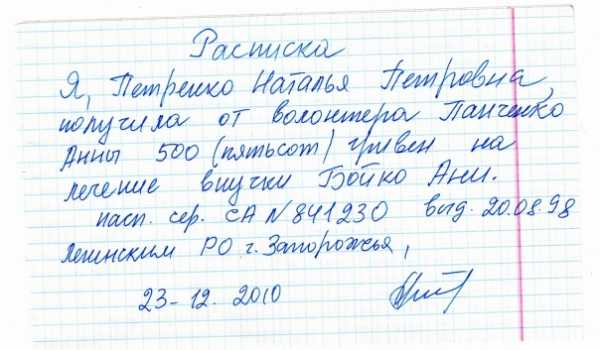 Расписка
Я, Петренко Наталья Петровна,
получила от волонтера Панченко
Анны 500 (пятьсот) гривен на
лечение внучки Бойко Ани.
пасп. сер. СА N 841230 выд. 20.08.98
Ленинским РО г. Запорожья,
23-12. 2010